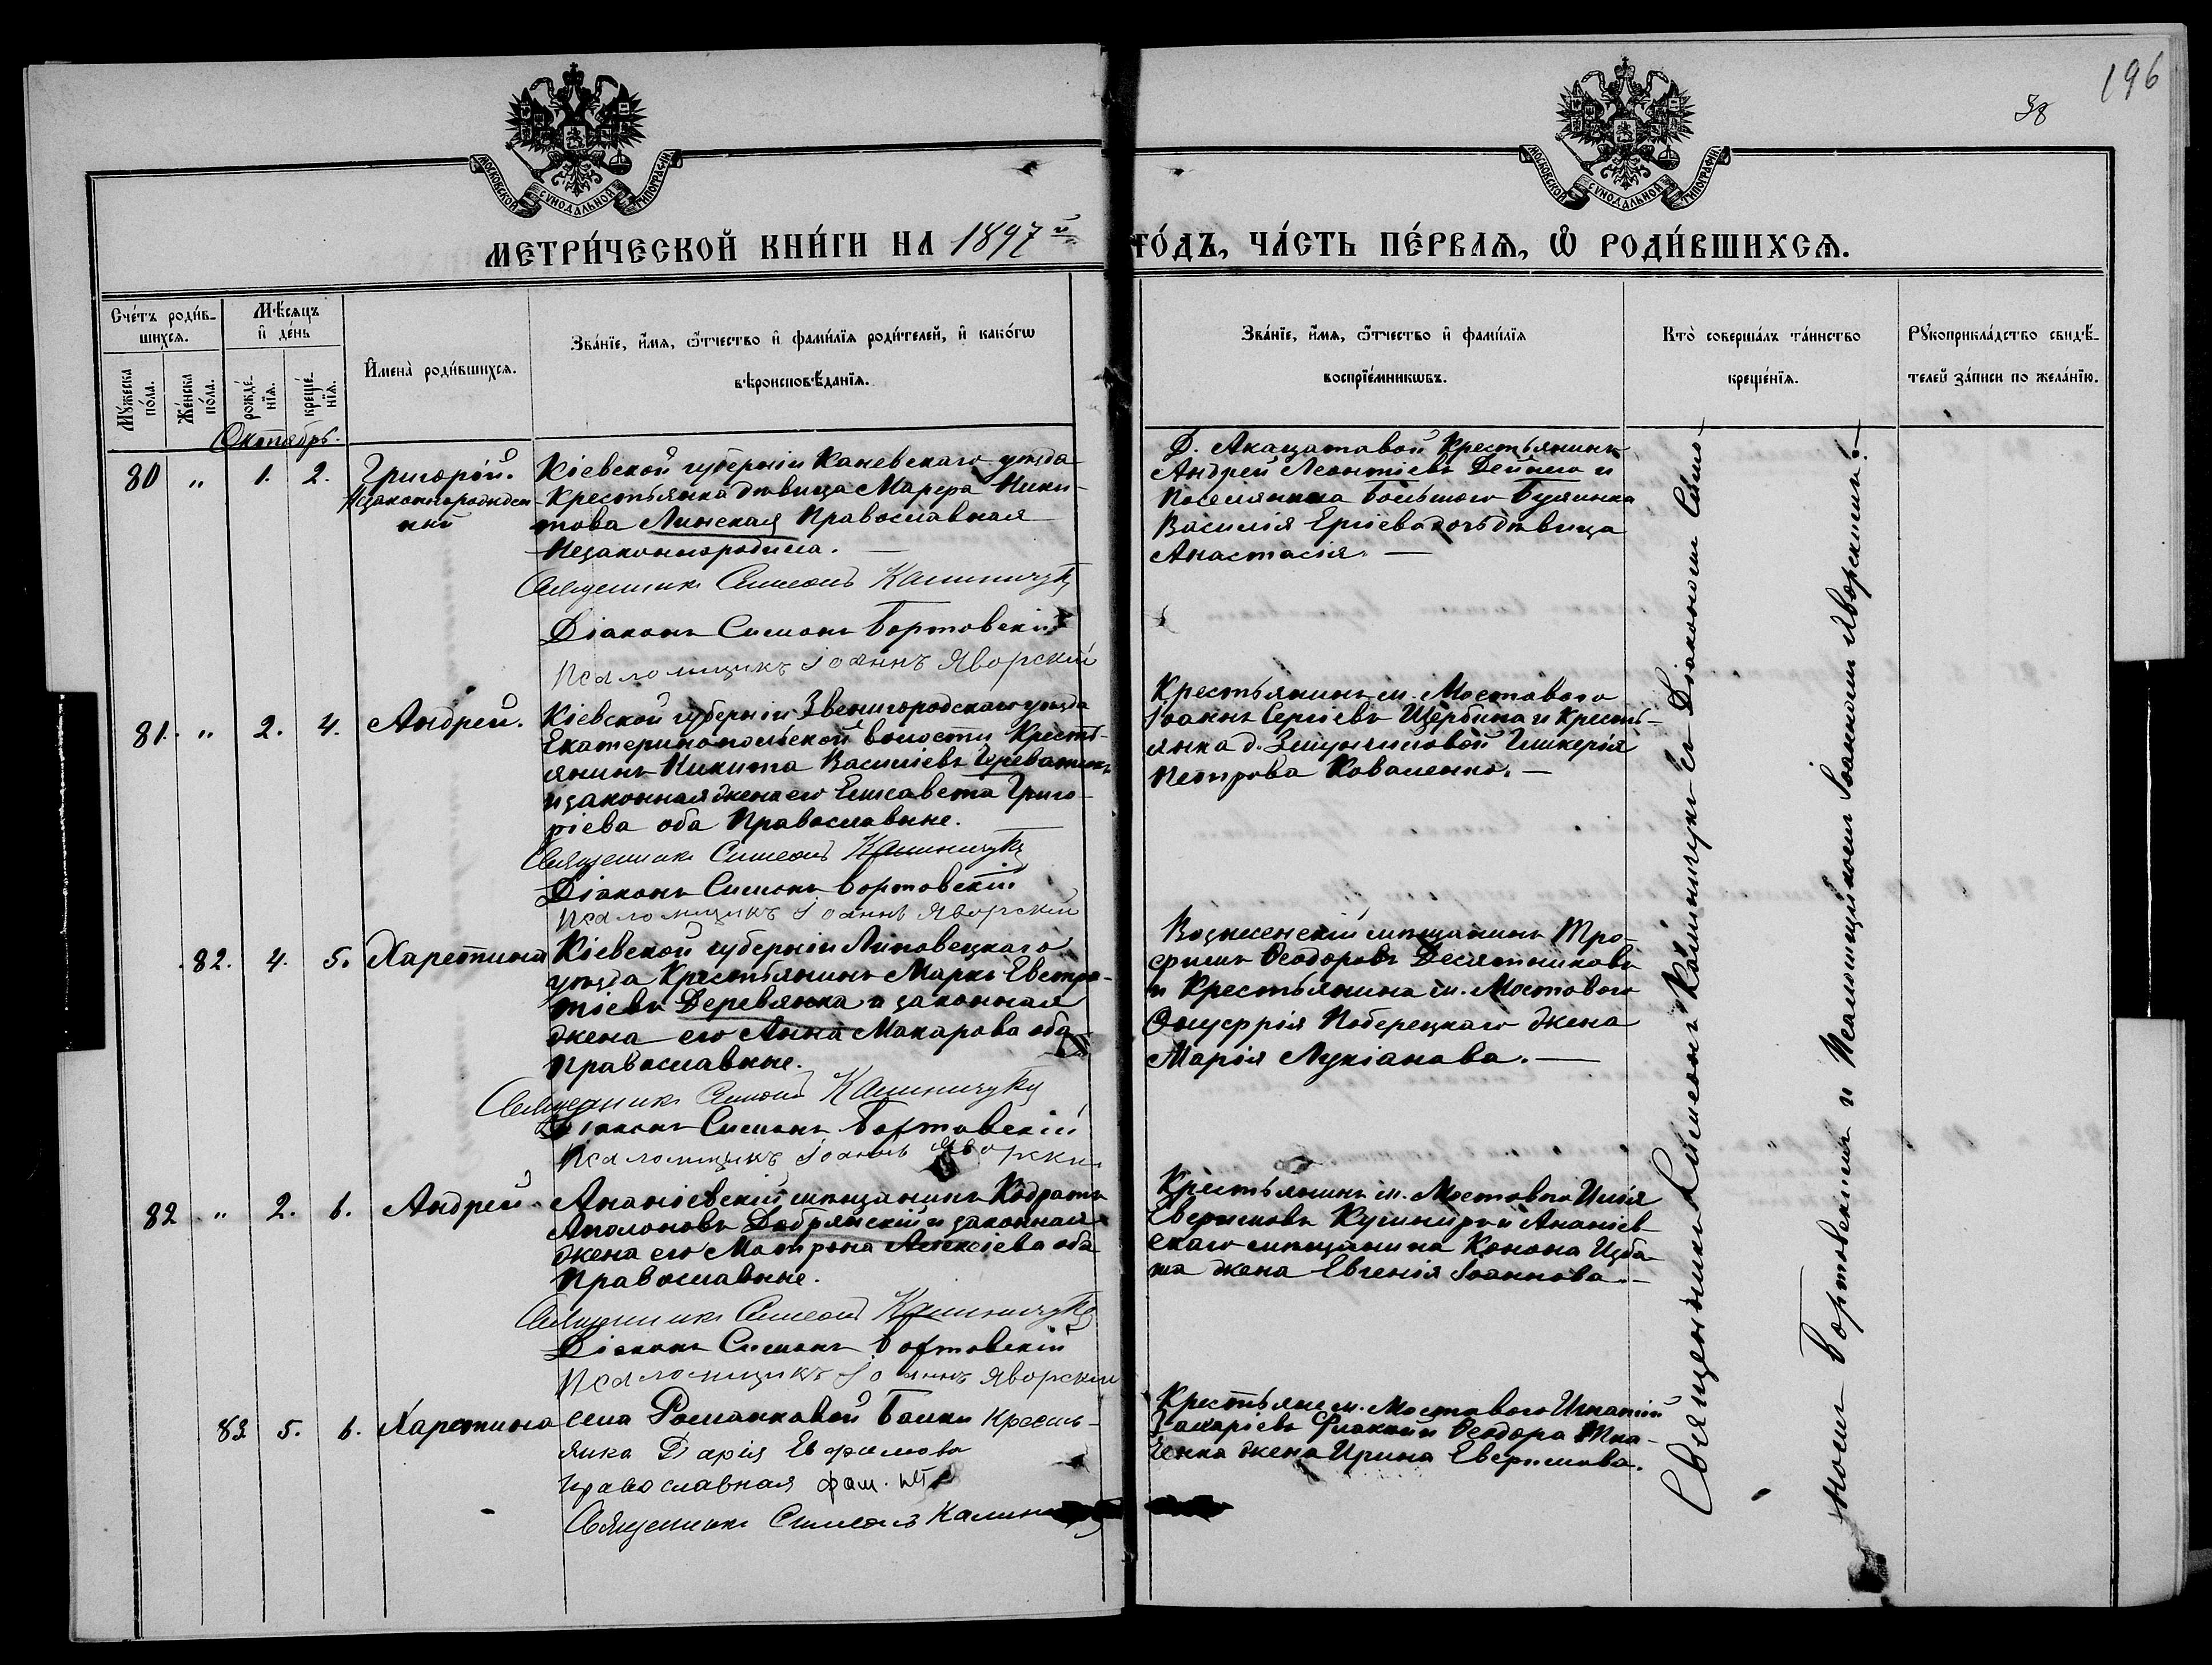 196
38
МОСКОВСКОЙ СѴНОДАЛЬНОЙ ТИПОГРАФІИ
МОСКОВСКОЙ СѴНОДАЛЬНОЙ ТИПОГРАФІИ
МЕТРИ́ЧЕСКОЙ КНИ́ГИ НА 1897й
ГО́ДЪ, ЧА́СТЬ ПЕ́РВАѦ, Ѽ РОДИ́ВШИХСѦ.
Сче́тъ роди́в-
шихсѧ.
Мѣ́сѧцъ
и҆ де́нь
Мꙋ́жеска
по́ла.
Же́нска
по́ла.
рожде́-
нїѧ.
креще́-
нїѧ.
И҆мена̀ роди́вшихсѧ.
Зва́нїе, и҆́мѧ, ѻ҆́тчество и҆ фами́лїѧ роди́телей, и҆ како́гѡ
вѣроисповѣ́данїѧ.
Зва́нїе, и҆́мѧ, ѻ҆́тчество и҆ фами́лїѧ
воспрїе́мникѡвъ.
Кто̀ соверша́лъ та́инство
креще́нїѧ.
Рꙋкоприкла́дство свидѣ́-
телей за́писи по жела́нїю.
Октябрь.
80 " 1. 2. Григорій.
Незаконнорожден
ный
Кіевской губерніи Каневскаго уѣзда
Крестьянка дѣвица Марѳа Ники-
това Линская Православная
Незаконнородила. —
Священникъ Симеонъ Калиничукъ
Діаконъ Симонъ Бортовскій
Псаломщикъ Іоаннъ Яворскій
Д. Акацатовой Крестьянинъ
Андрей Леонтіевъ и
Поселянина
Василія дочь дѣвица
Анастасія. —
81. " 2. 4. Андрей.
Кіевской губерніи Звенигородскаго уѣзда
Екатеринопольской волости Кресть-
янинъ Никита Василіевъ
и законная жена его Елисавета Григо-
ріева оба Православные.
Священникъ Симеонъ Калиничукъ
Діаконъ Симонъ Бортовскій
Псаломщикъ Іоаннъ Яворскій
Крестьянинъ м. Мостоваго
Іоаннъ Сергіевъ Щербина и Кресть-
янка д. Гликерія
Петрова Коваленко. —
82. 4. 5. Харетина
Кіевской губерніи Липовецкаго
уѣзда Крестьянинъ Маркъ Евстра-
тіевъ Деревянка и законная
жена его Анна Макарова оба
Православные.
Священникъ Симеонъ Калиничукъ
Діаконъ Симонъ Бортовскій
Псаломщикъ Іоаннъ Яворскій
Вознесенскій мѣщанинъ Тро-
фимъ Ѳеодоровъ Десятниковъ
и Крестьянина м. Мостоваго
Онуфрія Поберецкаго жена
Марія Лукіанова. —
82 " 2. 6. Андрей
Ананіевскій мѣщанинъ Кодратъ
Аполоновъ Добрянскій и законная
жена его Матрона Алексіева оба
Православные.
Священникъ Симеонъ Калиничукъ
Діаконъ Симонъ Бортовскій
Псаломщикъ Іоаннъ Яворскій
Крестьянинъ м. Мостоваго Илія
Кушниръ и Ананіев-
скаго мѣщанина Конона
жена Евгенія Іоаннова. —
83. 5. 6. Харетина
села Романковой Балки Кресть-
янка Дарія Евфимова
православная фам.
Священникъ Симеонъ Калини
Крестьяне м. Мостоваго Игнатій
Захаріевъ и Ѳеодора Тка-
ченка жена Ирина Евфимова.
Священникъ Симеонъ Калиничукъ съ Діакономъ Симо-
номъ Бортовскимъ и Псаломщикомъ Іоанномъ Яворскимъ. —